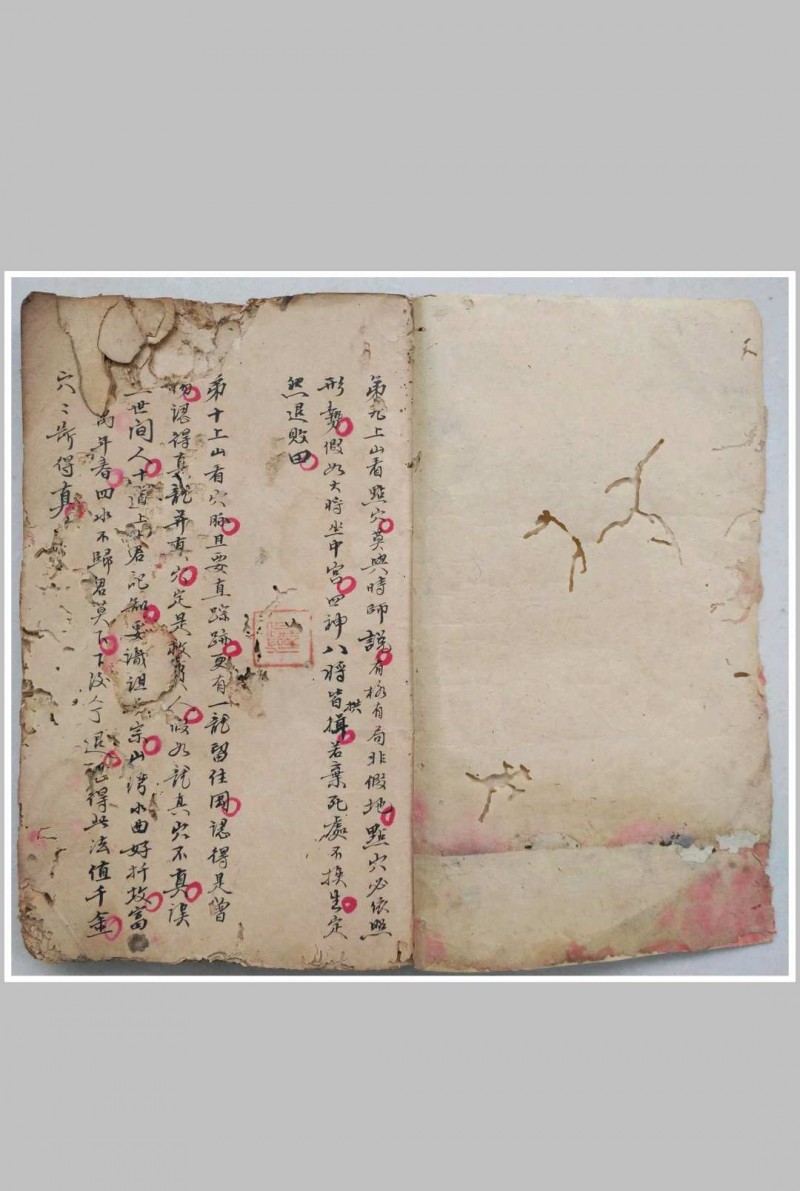 第九上山看點穴莫與時師說有格有局非假地點穴必依照
形勢假如大將坐中宮四神八將皆拱揖若棄死處不換生定
然退敗田
第十上山看穴脉且要直踪跡更有一龍留住圓認得是曾
物認得真龍并真穴定是救貧人假如龍真穴不真誤
世間人十道上君記知要識祖宗山灣水曲好折放富
萬年春四水不歸君莫下下後人丁退記得此法值千金
穴穴斯得真